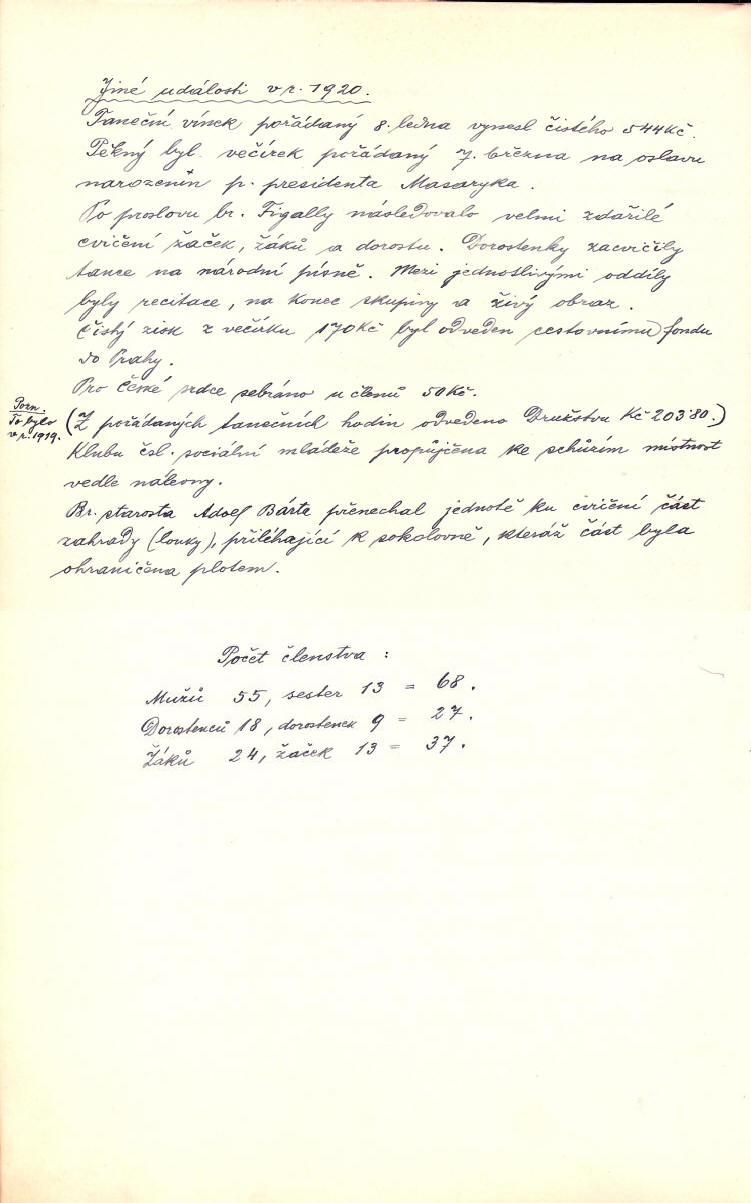 Jiné události v r. 1920.
Taneční vínek pořádaný 8. ledna vynesl čistého 544 Kč.
Pěkný byl večírek pořádaný 7. března na oslavu
narozenin p. presidenta Masaryka.
Po proslovu br. Figally následovalo velmi zdařilé
cvičení žaček, žáků a dorostu. Dorostenky zacvičily
tance na národní písně. Mezi jednotlivými oddíly
byly recitace, na konec skupiny a živý obraz.
Čistý zisk z večírku 170 Kč byl odveden cestovnímu fondu
do Prahy.
Pro České srdce sebráno u členů 50 Kč.
Pozn.
To bylo
v r. 1919.
(Z pořádaných tanečních hodin odvedeno Družstvu Kč 203·80.)
Klubu čsl. sociální mládeže propůjčena ke schůzím místnost
vedle nálevny.
Br. starosta Adolf Bárta přenechal jednotě ku cvičení část
zahrady (louky), přiléhající k sokolovně, kteráž část byla
ohraničena plotem.
Počet členstva :
Mužů 55, sester 13 = 68.
Dorostenců 18, dorostenek 9 = 27.
Žáků 24, žaček 13 = 37.